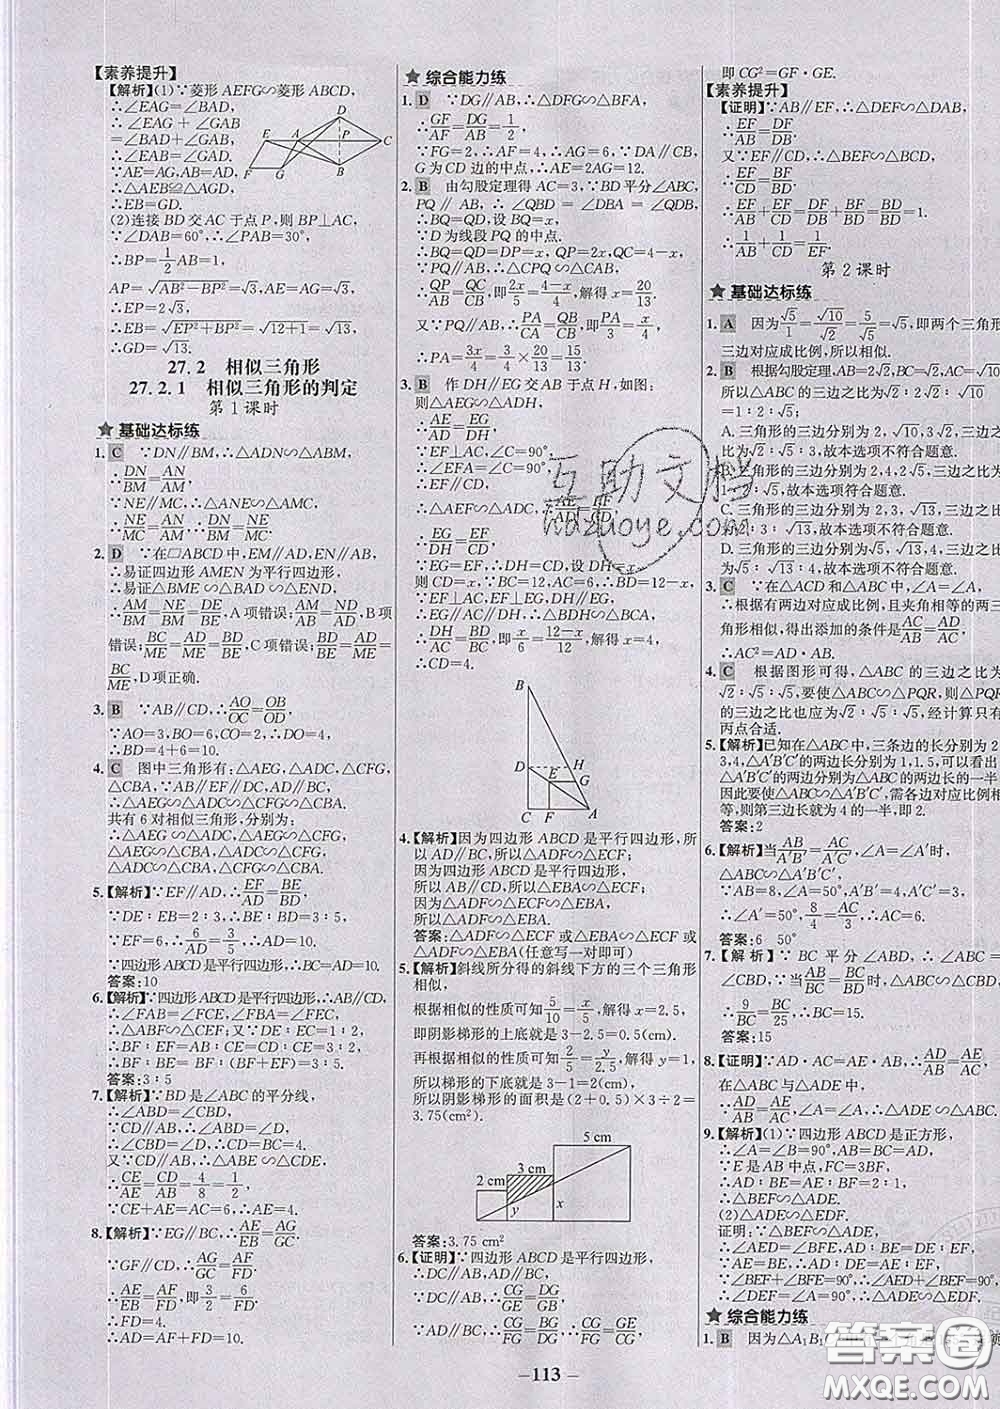 【素养提升】
【解析】(1)∵菱形 AEFG∽菱形 ABCD,
∴∠EAG=∠BAD,
∴∠EAG+∠GAB
=∠BAD+∠GAB
∴∠EAB=∠GAD.
∵AE=AG,AB=AD,
∴△AEB≌△AGD,
∴EB=GD.
(2)连接 BD 交 AC 于点 P,则 BP⊥AC,
∵∠DAB=60°,∴∠PAB=30°,
∴BP=1/2 AB=1,
AP=√(AB²-BP²)=√3,AE=AG=√3,
∴EP=2√3,
∴EB=√(EP²+BP²)=√(12+1)=√13,
∴GD=√13.
27.2 相似三角形
27.2.1 相似三角形的判定
第1课时
★基础达标练
1. C ∵DN∥BM,∴△ADN∽△ABM,
∴DN/BM=AN/AM.
∵NE∥MC,∴△ANE∽△AMC,
∴NE/MC=AN/AM,∴DN/BM=NE/MC.
2. D ∵在▱ABCD 中,EM∥AD,EN∥AB,
∴易证四边形 AMEN 为平行四边形,
∴易证△BME∽△BAD∽△END,
∴AM/BM=NE/BM=DE/BE,A 项错误;AM/AB=DN/AD,B 项
错误;BC/ME=AD/ME=BD/BE,C 项错误;BD/BE=AD/ME=
BC/ME,D项正确.
3. B ∵AB∥CD,∴AO/OC=OB/OD,
∵AO=3,BO=6,OC=2,∴OB=4,
∴BD=4+6=10.
4. C 图中三角形有:△AEG,△ADC,△CFG,
△CBA,∵AB∥EF∥DC,AD∥BC,
∴△AEG∽△ADC∽△CFG∽△CBA,
共有 6 对相似三角形,分别为:
△AEG∽△ADC,△AEG∽△CFG,
△AEG∽△CBA,△ADC∽△CFG,
△ADC∽△CBA,△CFG∽△CBA.
5.【解析】∵EF∥AD,∴EF/AD=BE/BD,
∵DE:EB=2:3,∴BE:BD=3:5,
∵EF=6,∴6/AD=3/5,∴AD=10,
∵四边形ABCD 是平行四边形,∴BC=AD=10.
答案:10
6.【解析】∵四边形 ABCD 是平行四边形,∴AB∥CD,
∴∠FAB=∠FCE,∠FBA=∠FEC,
∴△ABF∽△CEF;又∵DE:EC=1:2,
∴BF:EF=AB:CE=CD:CE=3:2,
∴BF:BE=BF:(BF+EF)=3:5.
答案:3:5
7.【解析】∵BD 是∠ABC 的平分线,
∴∠ABD=∠CBD,
∵CD∥AB,∴∠ABD=∠D,
∴∠CBD=∠D,∴BC=CD=4.
又∵CD∥AB,∴△ABE∽△CDE,
∴CE/AE=CD/AB=4/8=1/2,
∵CE+AE=AC=6,∴AE=4.
8.【解析】∵EG∥BC,∴AE/EB=AG/GC.
∵GF∥CD,∴AG/GC=AF/FD,
∴AE/EB=AF/FD,即3/2=6/FD,
∴FD=4.
∴AD=AF+FD=10.
★综合能力练
1. D ∵DG∥AB,∴△DFG∽△BFA,
∴GF/AF=DG/AB=1/2,
∵FG=2,∴AF=4,∴AG=6,∵DA∥CB,
G 为CD 边的中点,∴AE=2AG=12.
2. B 由勾股定理得 AC=3,∵BD 平分∠ABC,
PQ∥AB,∴∠QBD=∠DBA=∠QDB,
∴BQ=QD,设 BQ=x,
∵D 为线段 PQ 的中点.
∴BQ=QD=DP=x,QP=2x,QC=4-x,
∵PQ∥AB,∴△CPQ∽△CAB,
∴QP/AB=QC/CB,即2x/5=(4-x)/4,解得 x=20/13.
又∵PQ∥AB,∴PA/CA=QB/CB,即PA/3=x/4,
∴PA=3x/4=3/4×20/13=15/13.
3. B 作 DH∥EG 交 AB 于点 H,如图:
则△AEG∽△ADH,
∴AE/AD=EG/DH.
∵EF⊥AC,∠C=90°,
∴∠EFA=∠C=90°,
∴EF∥CD,
∴△AEF∽△ADC,
∴EG/DH=EF/CD,
∵EG=EF,∴DH=CD,设 DH=x,
则 CD=x,∵BC=12,AC=6,∴BD=12-x,
∵EF⊥AC,EF⊥EG,
∴EG∥AC∥DH,∴△BDH∽△BCA,
∴DH/AC=BD/BC,即x/6=(12-x)/12,解得 x=4,
∴CD=4.
4.【解析】因为四边形 ABCD 是平行四边形,所
以 AD∥BC,所以△ADF∽△ECF;
因为四边形 ABCD 是平行四边形,
所以 AB∥CF,所以△ECF∽△EBA.
因为△ADF∽△ECF,△ECF∽△EBA,
所以△ADF∽△EBA.
答案:△ADF∽△ECF 或△EBA∽△ECF 或
△ADF∽△EBA(任意写一对即可)
5.【解析】斜线所分得的斜线下方的三个三角形
相似,
根据相似的性质可知5/10=x/5,解得 x=2.5,
即阴影梯形的上底就是 3-2.5=0.5(cm).
再根据相似的性质可知2/5=y/2.5,解得 y=1,
所以梯形的下底就是 3-1=2(cm),
所以阴影梯形的面积是(2+0.5)×3÷2=
3.75(cm²).
答案:3.75 cm²
6.【证明】∵四边形 ABCD 是平行四边形,
∴DC∥AB,AD∥BC,
∵DC∥AB,∴CG/GE=DG/GB,
∵AD∥BC,∴CG/FG=DG/BG,∴CG/FG=GE/CG,
即 CG²=GF·GE.
【素养提升】
【证明】∵AB∥EF,∴△DEF∽△DAB,
∴EF/AB=DF/DB.
又∵EF∥CD,∴△BEF∽△BCD,
∴EF/CD=BF/BD,
∴EF/AB+EF/CD=DF/DB+BF/BD=BD/BD=1,
∴1/AB+1/CD=1/EF.
第2课时
★基础达标练
1. A 因为√5/1=√10/√2=5/√5=√5,即两个三角形
三边对应成比例,所以相似.
2. B 根据勾股定理,AB=2√2,BC=√2,AC=√10
所以△ABC 的三边之比为√2:2√2:√10
=1:2:√5;
A.三角形的三边分别为 2,√10,3√2,三边之
比为√2:√5:3,故本选项不符合题意.
B.三角形的三边分别为 2,4,2√5,三边之比
,故本选项符合题意.
C.三角形的三边分别为 2,3,√13,三边之比
为2:3:√13,故本选项不符合题意.
D.三角形的三边分别为√5,√13,4,三边之比
为√5:√13:4,故本选项不符合题意.
3. C ∵在△ACD 和△ABC 中,∠A=∠A,
∴根据有两边对应成比例,且夹角相等的两三
角形相似,得出添加的条件是AC/AD=AB/AC,
∴AC²=AD·AB.
4. C 根据图形可得,△ABC 的三边之比为
√2:√5:√5,要使△ABC∽△PQR,则△PQR
的三边之比也应为√2:√5:√5,经计算只有
丙点合适.
5.【解析】已知在△ABC 中,三条边的长分别为2,
3,4,△A′B′C′的两边长分别为 1,1.5,可以看出,
△A′B′C′的两边分别为△ABC 的两边长的一半,
因此要使△ABC∽△A′B′C′,需各边对应比例相
等,则第三边长就为4的一半,即2.
答案:2
6.【解析】当AB/A′B′=AC/A′C′,∠A=∠A′时,
△ABC∽△A′B′C′,
∵AB=8,∠A=50°,A′B′=4,A′C′=3,
∴∠A′=50°,8/4=AC/3,∴AC=6.
答案:6 50°
7.【解析】∵BC 平分∠ABD,∴∠ABC=
∠CBD,∵当AB/BC=BC/BD时,△ABC∽△CBD,
∴9/BC=BC/25,∴BC=15.
答案:15
8.【证明】∵AD·AC=AE·AB,∴AD/AB=AE/AC,
在△ABC 与△ADE 中,
∵AD/AB=AE/AC,∠A=∠A,∴△ADE∽△ABC.
9.【解析】(1)∵四边形 ABCD 是正方形,
∴∠A=∠B=90°,AB=BC=AD,
∵E 是 AB 中点,FC=3BF,
∴AD:AE=BE:BF=2:1,
∴△ADE∽△BEF.
(2)△DEF∽△ADE.
证明:∵△BEF∽△ADE,
∴∠AED=∠BFE,AD:BE=DE:EF,
∵AE=BE,∴AD:AE=DE:EF,
∵∠BEF+∠BFE=90°,∴∠AED+∠BEF=90°,
∴∠DEF=∠A=90°,∴△DEF∽△ADE.
★综合能力练
1. B 因为△A₁B₁C
- 113 -
互助文档
hdzuoye.com
答案圈
MXQE.COM
A
B
C
D
E
F
G
P
B
D
H
E
G
C
F
A
2 cm
3 cm
5 cm
y
x